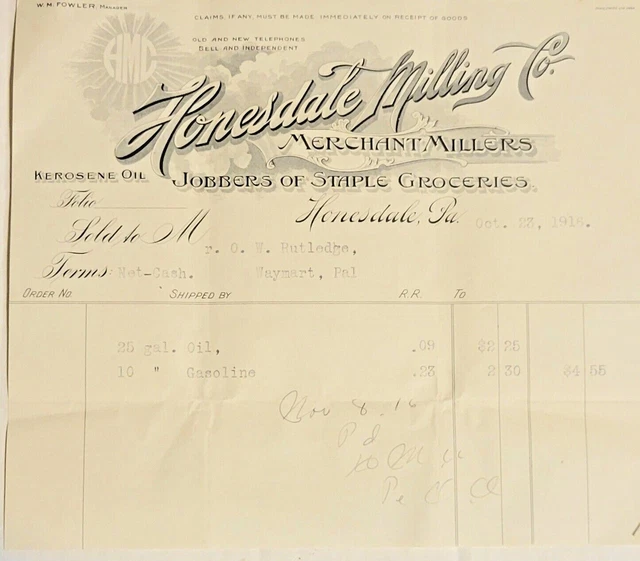 W. M. FOWLER, MANAGER
CLAIMS, IF ANY, MUST BE MADE IMMEDIATELY ON RECEIPT OF GOODS
OLD AND NEW TELEPHONES
BELL AND INDEPENDENT
HMC
Honesdale Milling Co.
MERCHANT MILLERS
KEROSENE OIL JOBBERS OF STAPLE GROCERIES.
Folio
Honesdale, Pa. Oct. 23, 1916.
Sold to Mr. O. W. Rutledge,
Terms: Net-Cash. Waymart, Pa1
ORDER NO. SHIPPED BY R.R. TO
25 gal. Oil, .09 $2 25
10 " Gasoline .23 2 30 $4 55
Nov 8. 16
Pd